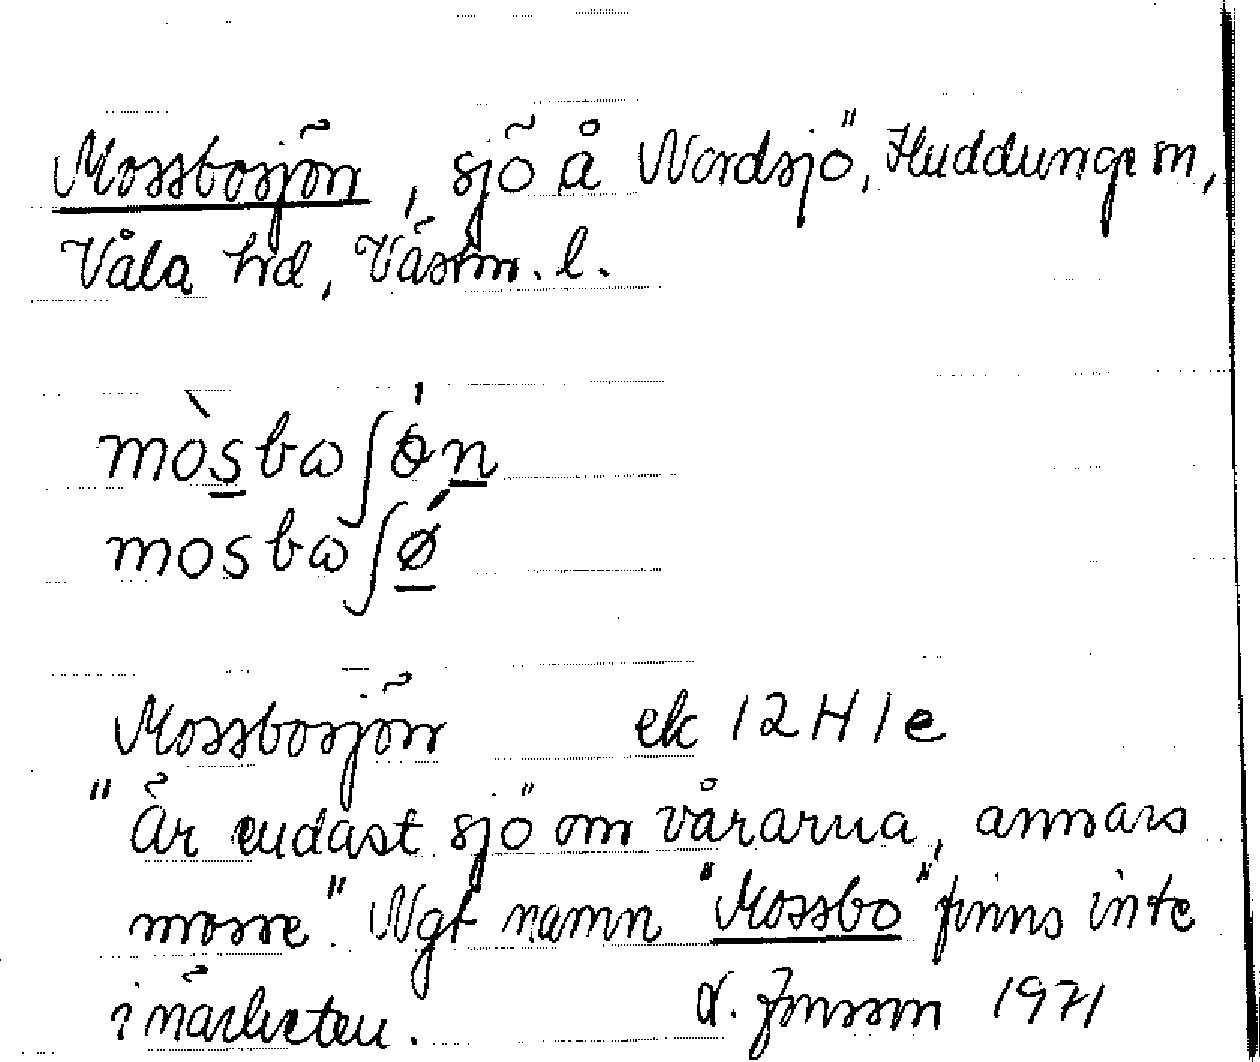 Mossbosjön, sjö å Nordsjö, Huddunge sn,
Våla hd, Västm. l.
mòsbɷʃǿn
mosbɷʃǿ
Mossbosjön ek 12H1e
"Är endast sjö om vårarna, annars
mosse". Ngt namn "Mossbo" finns inte
i närheten. Jonsson 1971